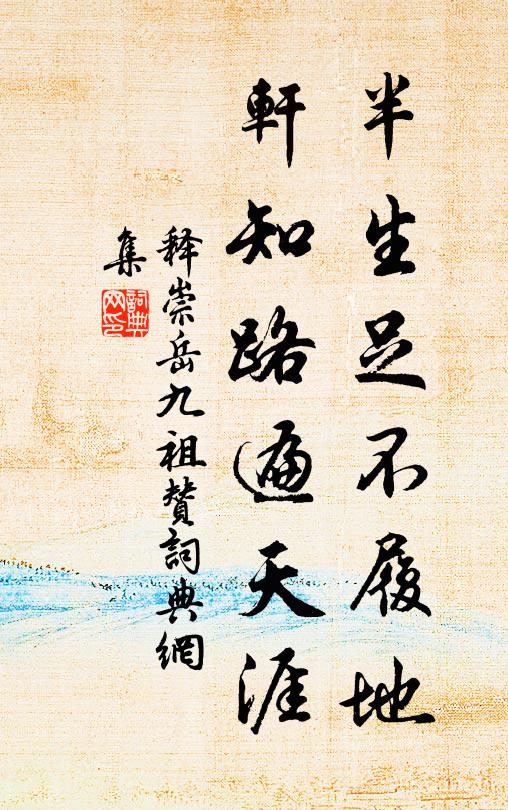 半生足不履地
軒知路遍天涯
释崇岳九祖賛詞典網
集
詞典
网印